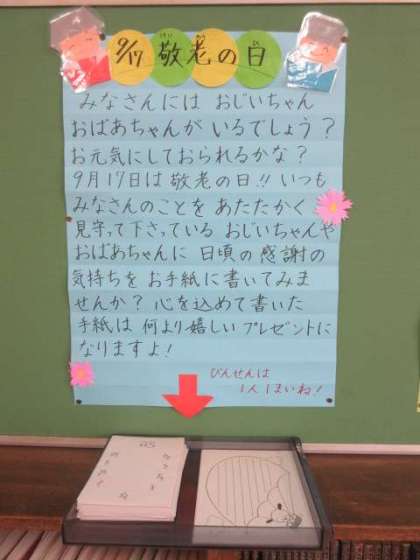 9/17 敬老の日
けいろう ひ
みなさんには おじいちゃん
おばあちゃんが いるでしょう？
お元気にしておられるかな？
9月17日は 敬老の日!! いつも
みなさんのことを あたたかく
見守って下さっている おじいちゃんや
おばあちゃんに 日頃の 感謝の
気持ちを お手紙に書いてみま
せんか？ 心を込めて書いた
手紙は 何より嬉しい プレゼントに
なりますよ！
びんせんは
1人1まいね！